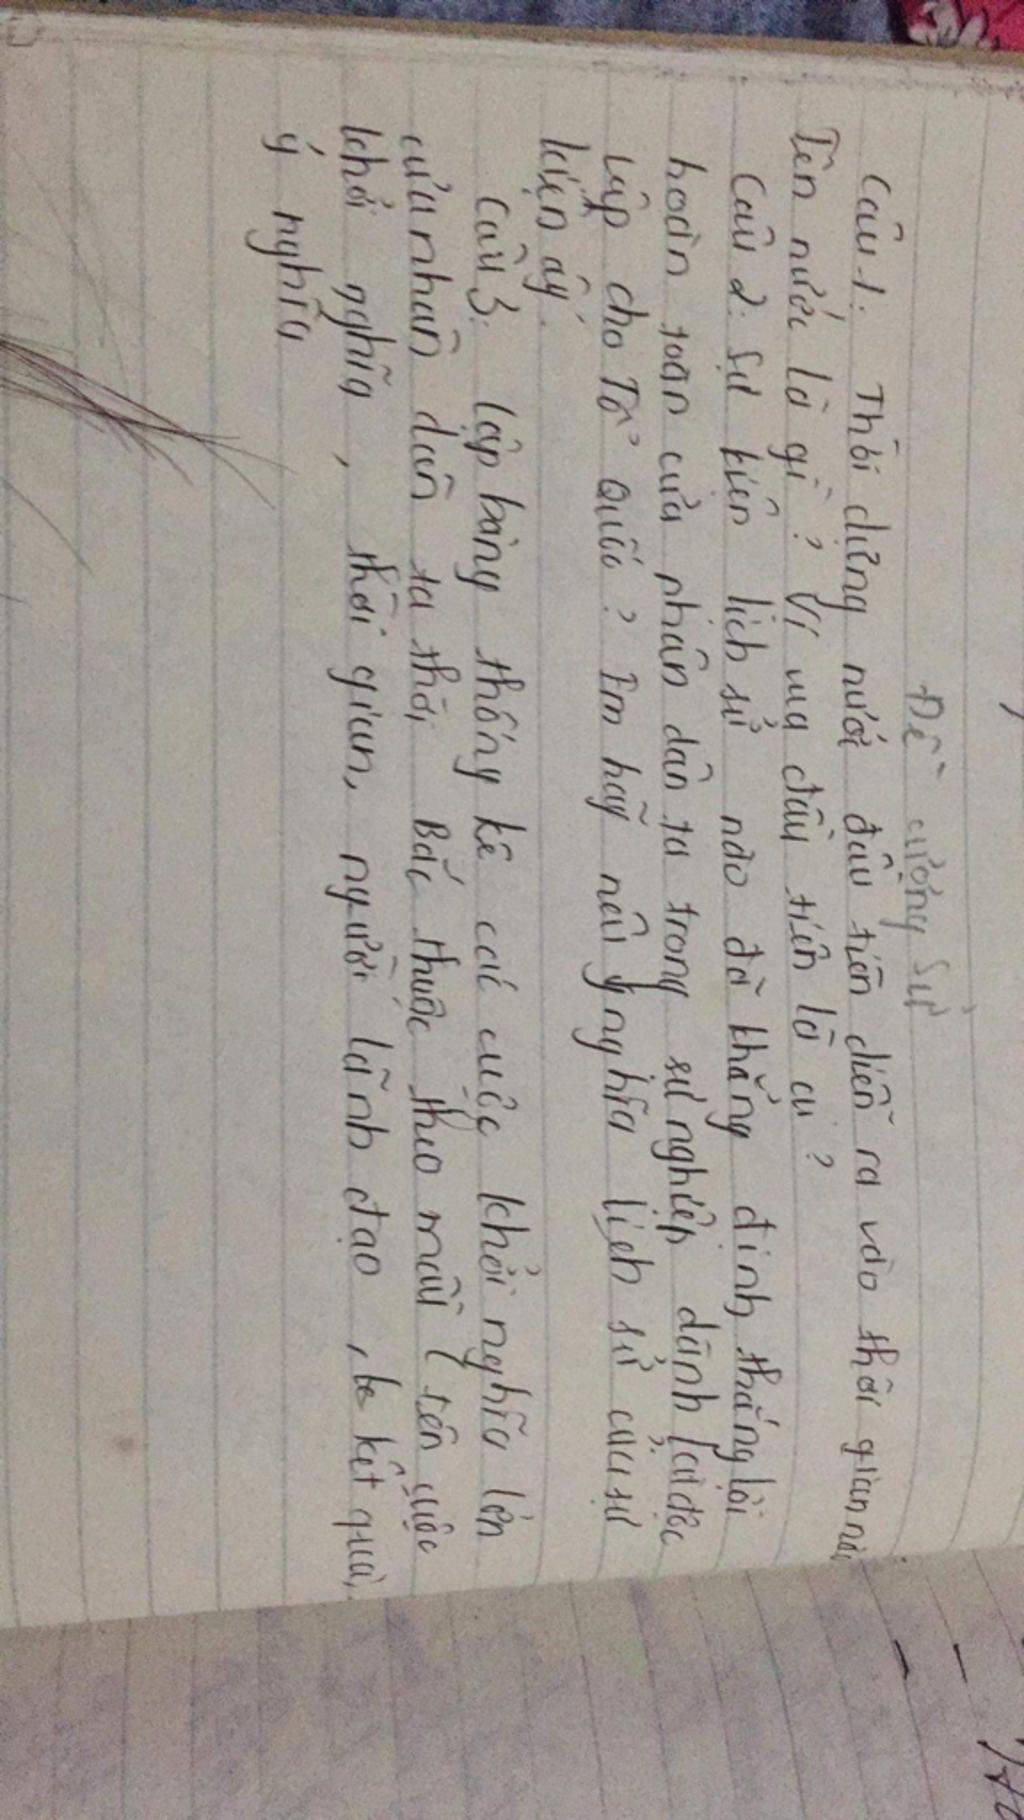 Đề cương Sử
Câu 1. Thời dựng nước đầu tiên diễn ra vào thời gian nào
Tên nước là gì? Vị vua đầu tiên là ai?
Câu 2. Sự kiện lịch sử nào đã khẳng định thắng lợi
hoàn toàn của nhân dân ta trong sự nghiệp dành lại độc
lập cho Tổ Quốc? Em hãy nêu ý nghĩa lịch sử của sự
kiện ấy.
Câu 3. lập bảng thống kê các cuộc khởi nghĩa lớn
của nhân dân ta thời Bắc thuộc theo mẫu (tên cuộc
khởi nghĩa, thời gian, người lãnh đạo, kết quả,
ý nghĩa